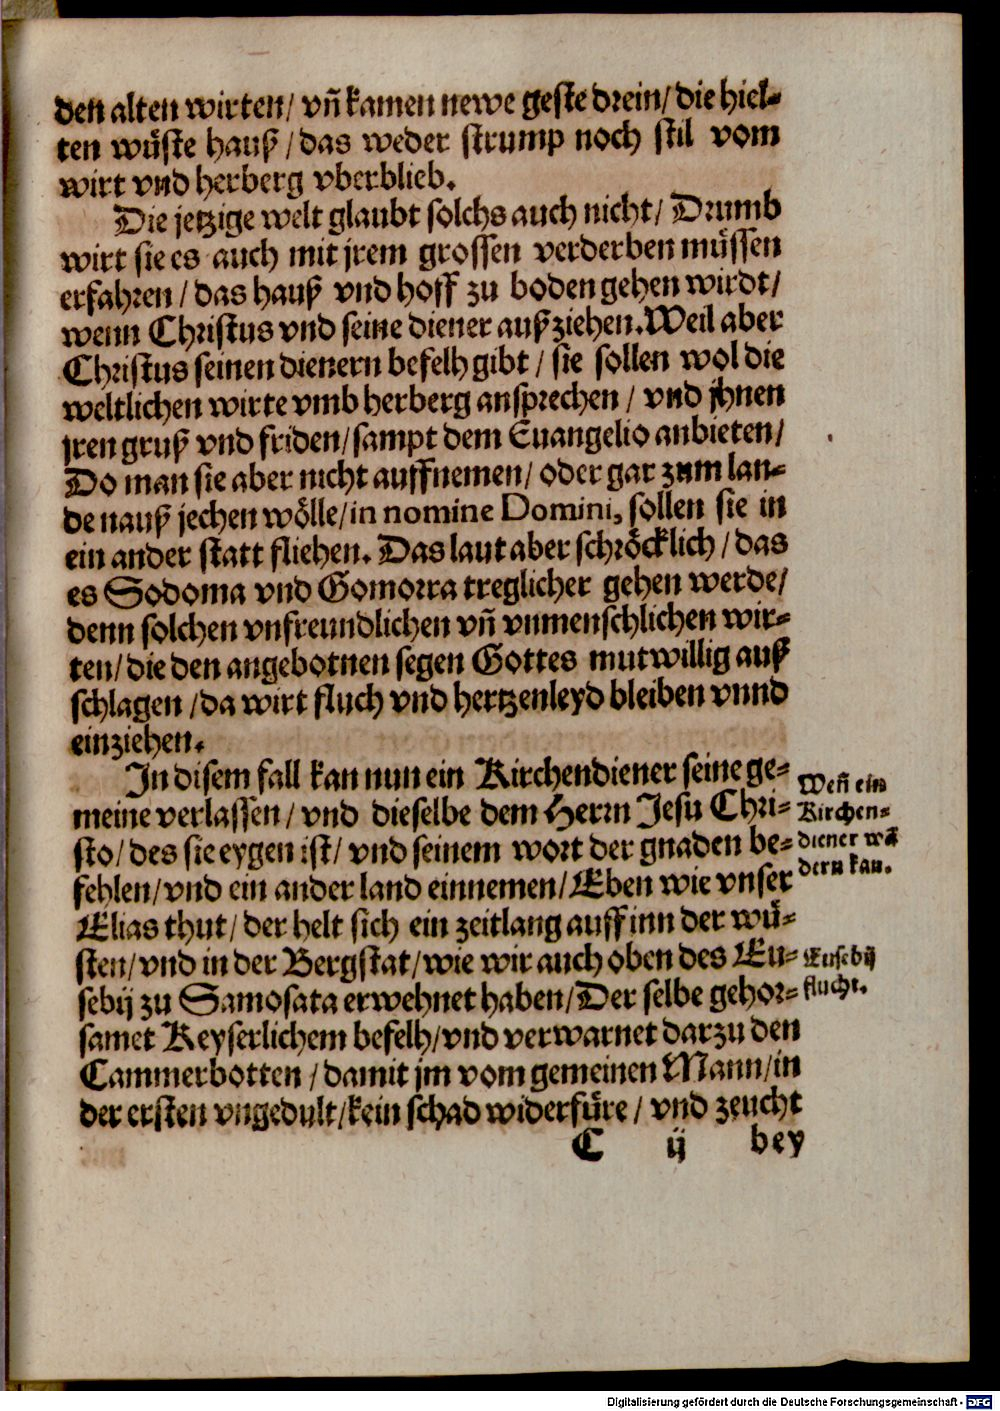 den alten wirten/ vñ kamen newe geste drein/ die hiel-
ten wüste hauß/das weder strump noch stil vom
wirt vnd herberg vberblieb.
Die jetzige welt glaubt solchs auch nicht/ Drumb
wirt sie es auch mit jrem grossen verderben müssen
erfahren/das hauß vnd hoff zu boden gehen wirdt/
wenn Christus vnd seine diener außziehen. Weil aber
Christus seinen dienern befelh gibt/ sie sollen wol die
weltlichen wirte vmb herberg ansprechen/ vnd jhnen
jren gruß vnd friden/sampt dem Euangelio anbieten/
Do man sie aber nicht auffnemen/ oder gar zum lan-
de nauß jechen wölle/in nomine Domini, sollen sie in
ein ander statt fliehen. Das laut aber schröcklich/das
es Sodoma vnd Gomorra treglicher gehen werde/
denn solchen vnfreundlichen vñ vnmenschlichen wir-
ten/die den angebotnen segen Gottes mutwillig auß
schlagen/da wirt fluch vnd hertzenleyd bleiben vnnd
einziehen.
In disem fall kan nun ein Kirchendiener seine ge-
meine verlassen/ vnd dieselbe dem Herrn Jesu Chri-
sto/des sie eygen ist/ vnd seinem wort der gnaden be-
fehlen/vnd ein ander land einnemen/Eben wie vnser
Elias thut/ der helt sich ein zeitlang auff inn der wü-
sten/vnd in der Bergstat/wie wir auch oben des Eu-
sebij zu Samosata erwehnet haben/Der selbe gehor-
samet Keyserlichem befelh/vnd verwarnet darzu den
Cammerbotten/damit jm vom gemeinen Mann/in
der ersten vngedult/kein schad widerfüre/ vnd zeucht
C ij bey
Weñ ein
Kirchen-
diener wã
dern kan.
Eusebij
flucht.
Digitalisierung gefördert durch die Deutsche Forschungsgemeinschaft - DFG